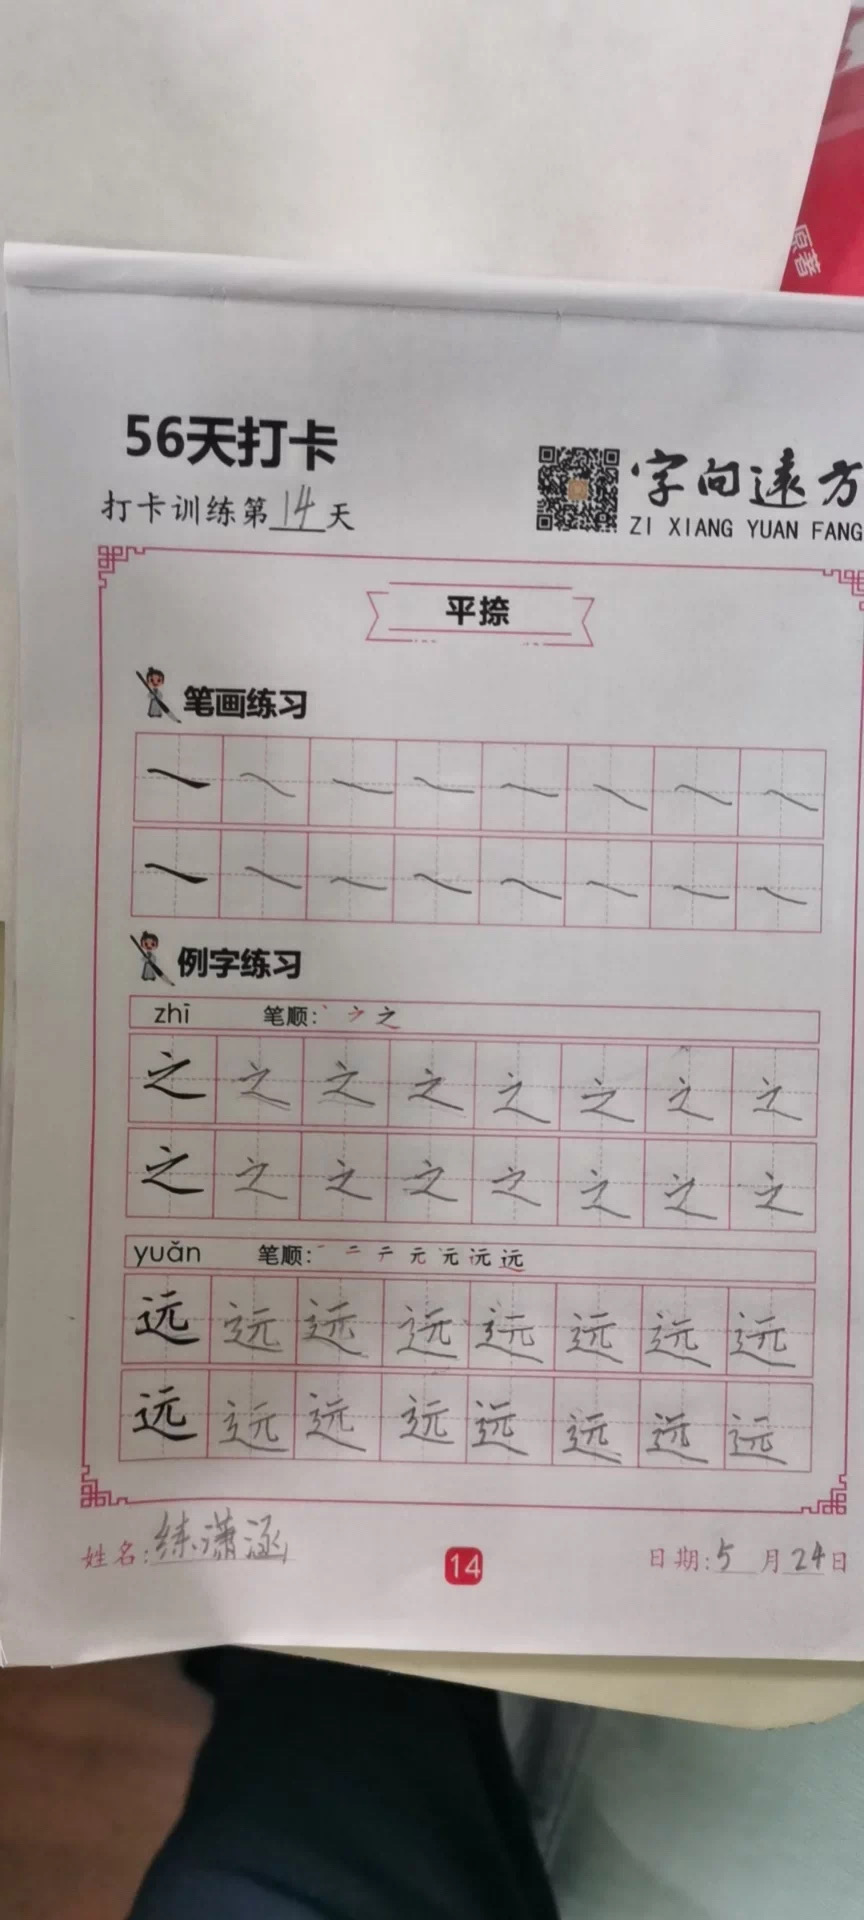 原著
56天打卡
打卡训练第14天
字向遠方
ZI XIANG YUAN FANG
平捺
笔画练习
例字练习
zhī 笔顺: 丶 ㇇ 之
之 之 之 之 之 之 之 之
之 之 之 之 之 之 之 之
yuǎn 笔顺: 一 二 テ 元 元 沅 远
远 远 远 远 远 远 远 远
远 远 远 远 远 远 远 远
姓名:练潇涵
14
日期:5月24日